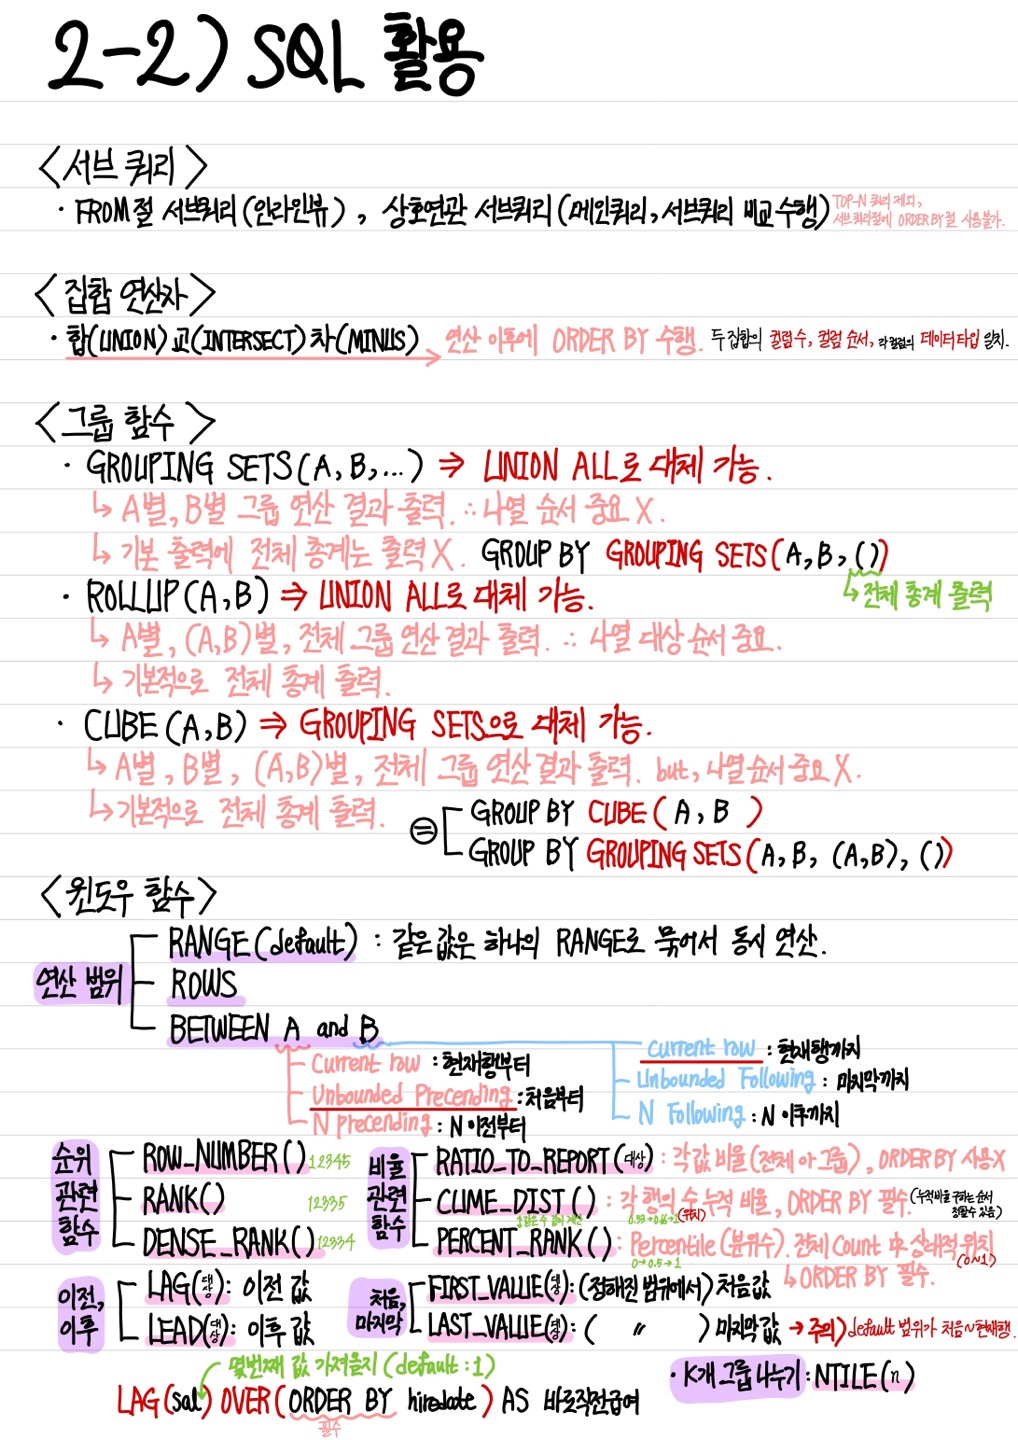 2-2) SQL 활용
<서브 쿼리>
· FROM절 서브쿼리(인라인뷰), 상호연관 서브쿼리(메인쿼리, 서브쿼리 비교 수행)
TOP-N 쿼리 제외,
서브쿼리절에 ORDER BY절 사용불가.
<집합 연산자>
· 합(UNION) 교(INTERSECT) 차(MINUS) → 연산 이후에 ORDER BY 수행. 두 집합의 컬럼수, 컬럼 순서, 각 컬럼의 데이터 타입 일치.
<그룹 함수>
· GROUPING SETS(A, B, ...) ⇒ UNION ALL로 대체 가능.
↳ A별, B별 그룹 연산 결과 출력. ∴ 나열 순서 중요 X.
↳ 기본 출력에 전체 총계는 출력 X. GROUP BY GROUPING SETS(A, B, ())
↳ 전체 총계 출력
· ROLLUP(A, B) ⇒ UNION ALL로 대체 가능.
↳ A별, (A,B)별, 전체 그룹 연산 결과 출력. ∴ 나열 대상 순서 중요.
↳ 기본적으로 전체 총계 출력.
· CUBE(A, B) ⇒ GROUPING SETS으로 대체 가능.
↳ A별, B별, (A,B)별, 전체 그룹 연산 결과 출력. but, 나열 순서 중요 X.
↳ 기본적으로 전체 총계 출력.
= GROUP BY CUBE(A, B)
GROUP BY GROUPING SETS(A, B, (A,B), ())
<윈도우 함수>
연산 범위
RANGE(default) : 같은 값은 하나의 RANGE로 묶어서 동시 연산.
ROWS
BETWEEN A and B
Current row : 현재행부터
Unbounded Precending : 처음부터
N precending : N 이전부터
current row : 현재행까지
Unbounded Following : 마지막까지
N Following : N 이후까지
순위 관련 함수
ROW_NUMBER() 12345
RANK() 12335
DENSE_RANK() 12334
비율 관련 함수
RATIO_TO_REPORT(대상) : 각 값 비율(전체 or 그룹), ORDER BY 사용X
CUME_DIST() : 각 행의 수 누적 비율, ORDER BY 필수. (누적비율 구하는 순서 정할수 있음)
0.33→0.66→1 (위치)
PERCENT_RANK() : Percentile(분위수). 전체 Count 中 상대적 위치 (0~1)
0→0.5→1
↳ ORDER BY 필수.
이전, 이후
LAG(대상) : 이전 값
LEAD(대상) : 이후 값
처음, 마지막
FIRST_VALUE(대상) : (정해진 범위에서) 처음값
LAST_VALUE(대상) : ( 〃 ) 마지막 값 → 주의) default 범위가 처음~현재행.
몇번째 값 가져올지 (default : 1)
LAG(sal) OVER(ORDER BY hiredate) AS 바로직전급여
필수
· K개 그룹 나누기 : NTILE(n)